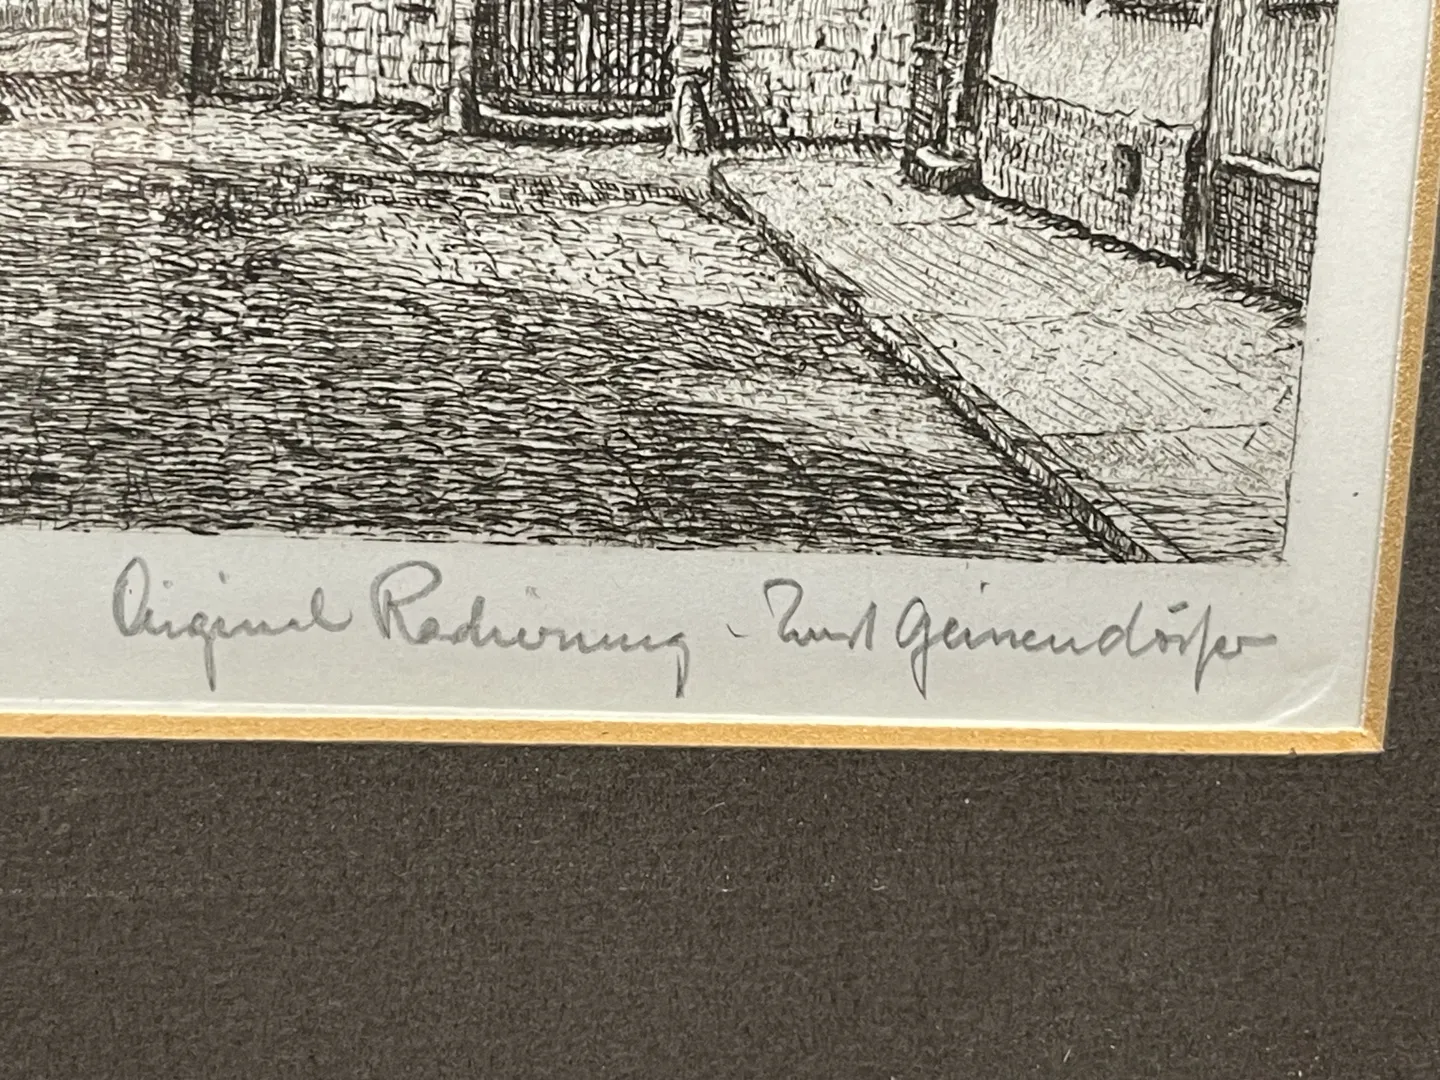 Original Radierung - Ernst Geissendörfer